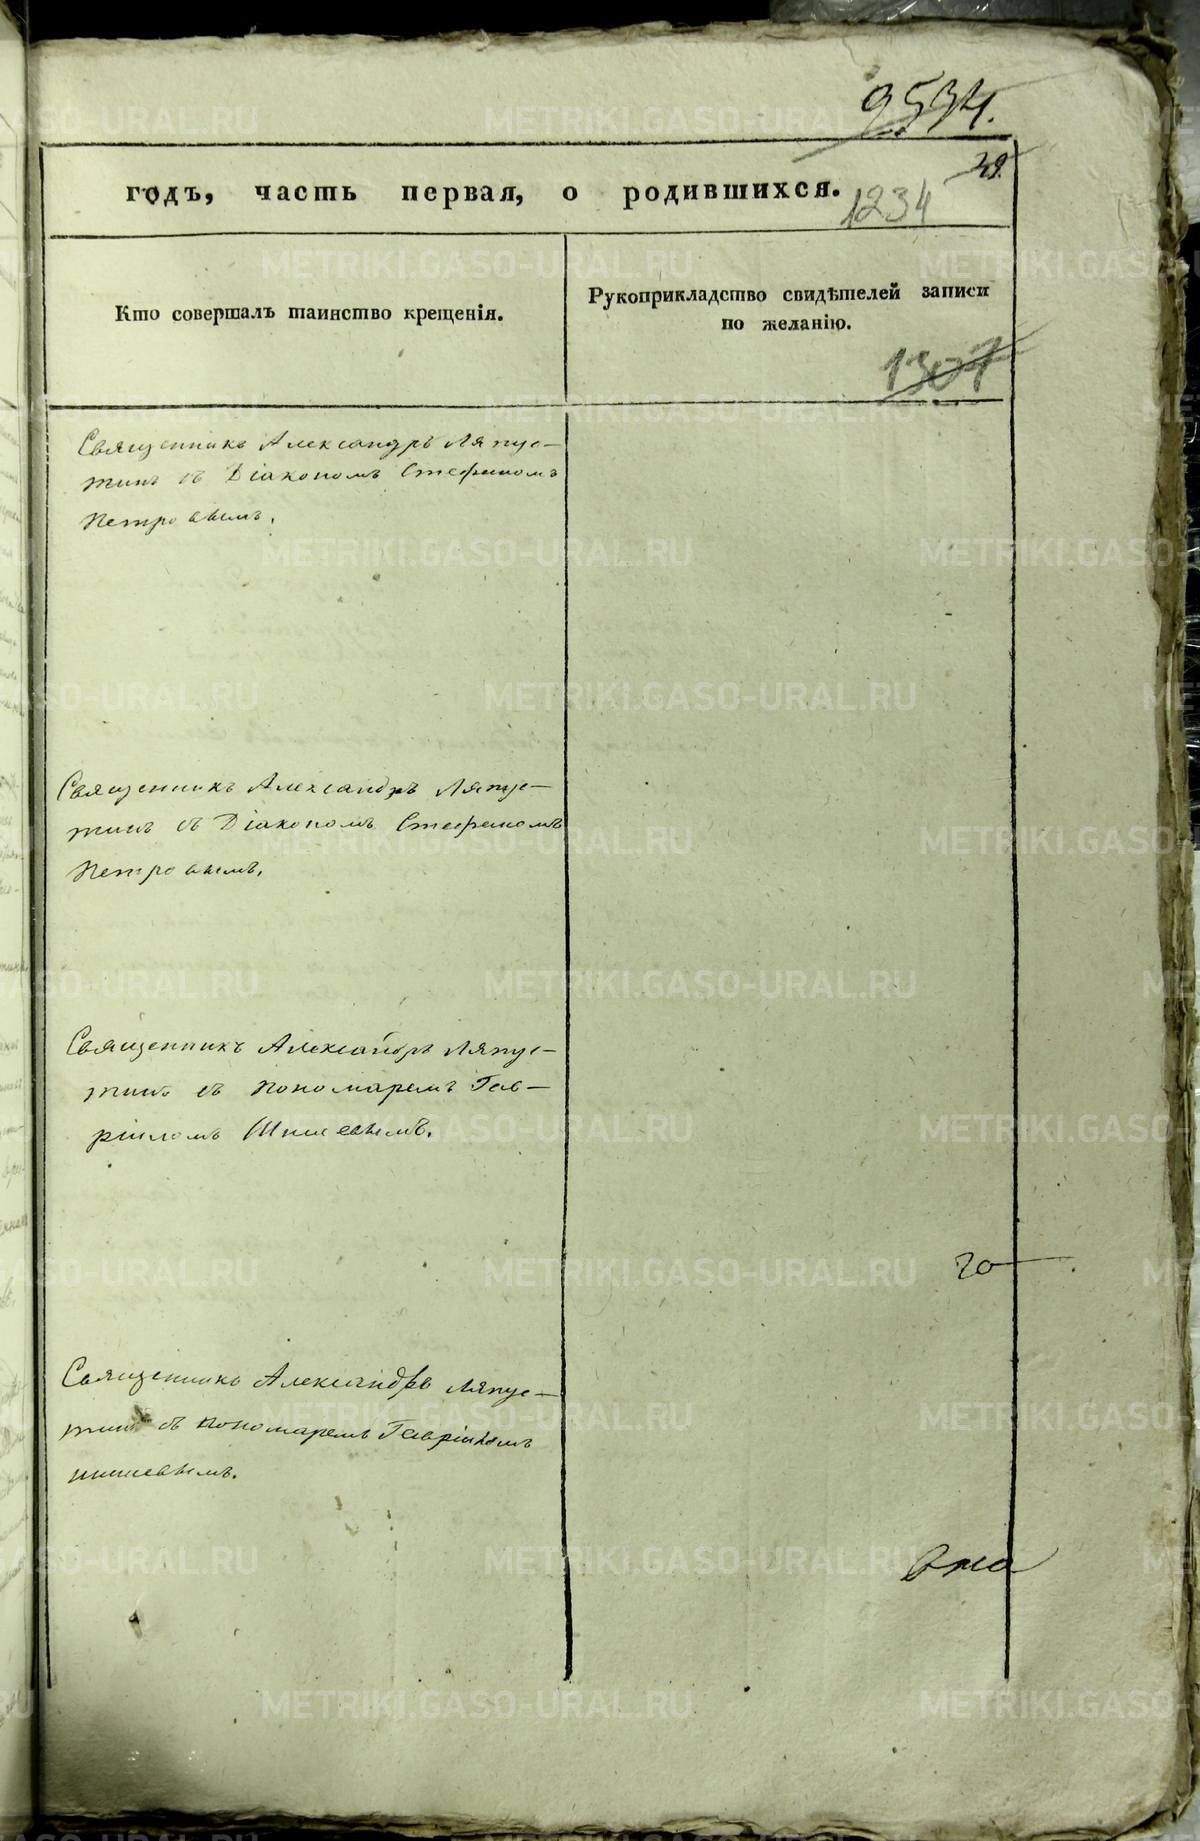 9534.
39.
годъ, часть первая, о родившихся.
1234
Кто совершалъ таинство крещенія.
Рукоприкладство свидѣтелей записи
по желанію.
1307
Священникъ Александръ Ляпус-
тинъ съ Діакономъ Стефаномъ
Петровымъ.
Священникъ Александръ Ляпус-
тинъ съ Діакономъ Стефаномъ
Петровымъ.
Священникъ Александръ Ляпус-
тинъ съ пономаремъ Гав-
рііломъ
Священникъ Александръ Ляпус-
тинъ съ пономаремъ Гавріиломъ
METRIKI.GASO-URAL.RU